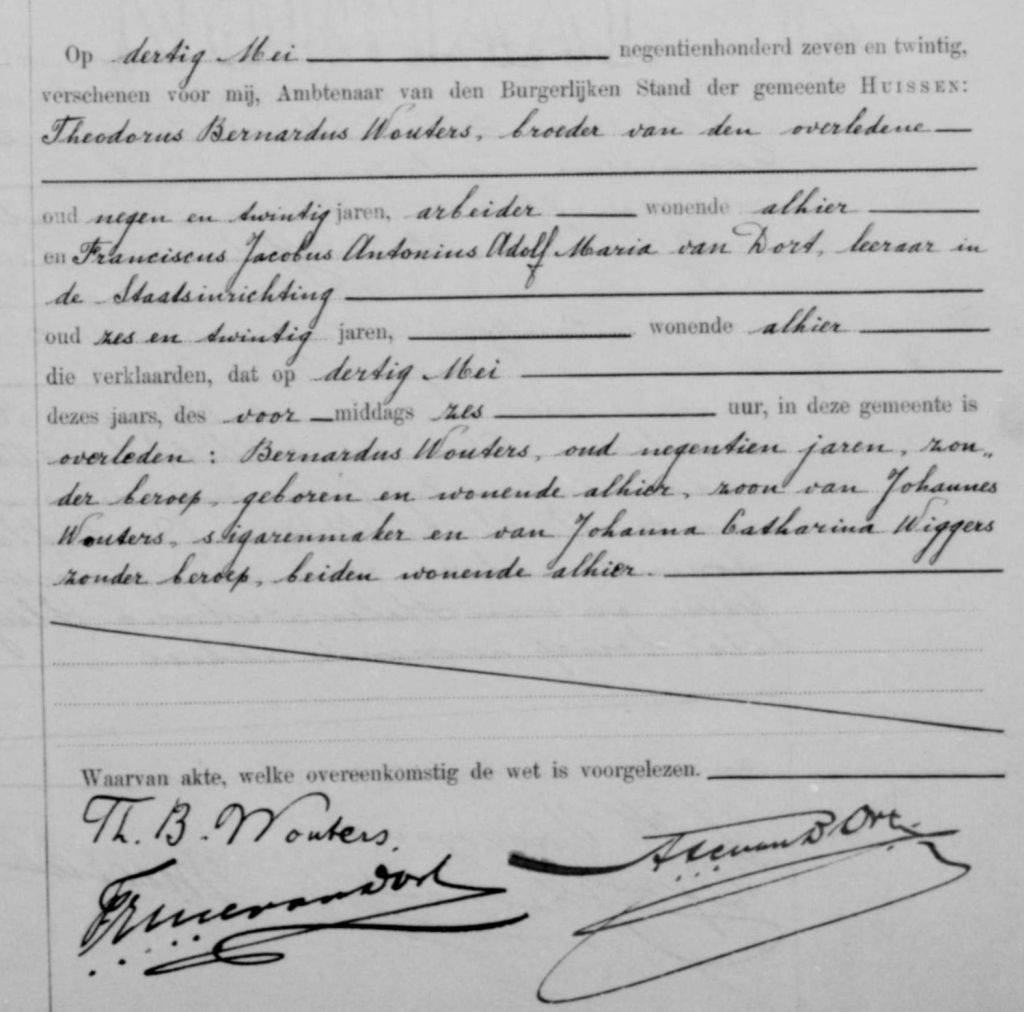 Op dertig Mei negentienhonderd zeven en twintig,
verschenen voor mij, Ambtenaar van den Burgerlijken Stand der gemeente HUISSEN:
Theodorus Bernardus Wouters, broeder van den overledene
oud negen en twintig jaren, arbeider wonende alhier
en Franciscus Jacobus Antonius Adolf Maria van Dort, leeraar in
de Staatsinrichting
oud zes en twintig jaren, wonende alhier
die verklaarden, dat op dertig Mei
dezes jaars, des voor middags zes uur, in deze gemeente is
overleden : Bernardus Wouters, oud negentien jaren, zon„
der beroep, geboren en wonende alhier, zoon van Johannes
Wouters, sigarenmaker en van Johanna Catharina Wiggers
zonder beroep, beiden wonende alhier.
Waarvan akte, welke overeenkomstig de wet is voorgelezen.
Th. B. Wouters.